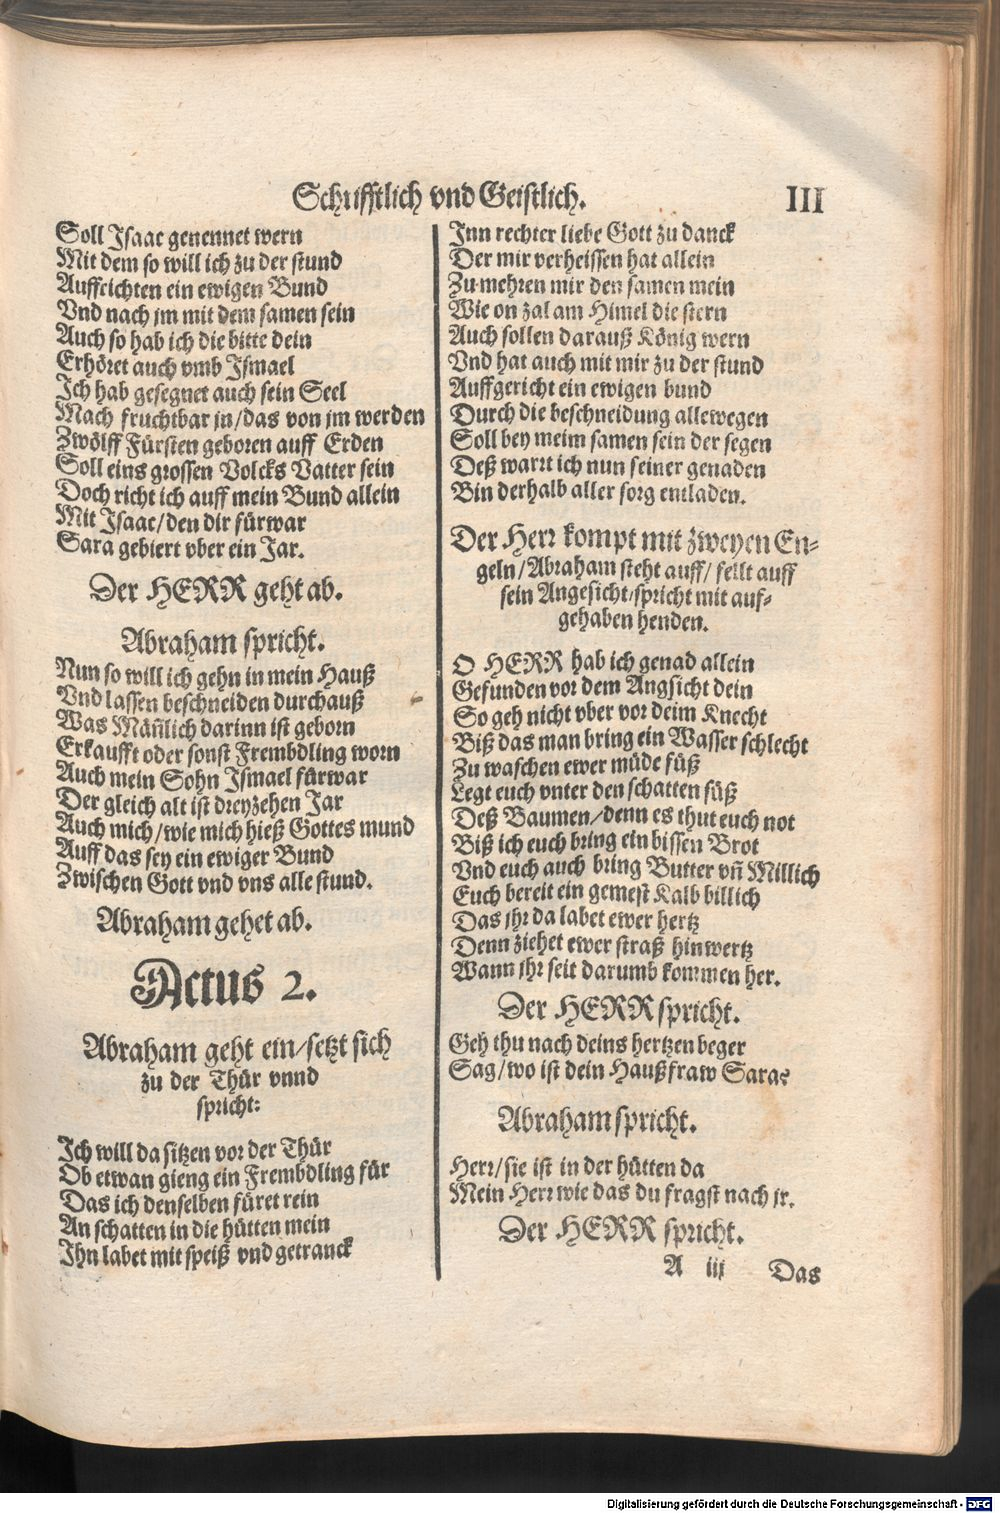 Schrifftlich vnd Geistlich.
III
Soll Isaac genennet wern
Mit dem so will ich zu der stund
Auffrichten ein ewigen Bund
Vnd nach jm mit dem samen sein
Auch so hab ich die bitte dein
Erhöret auch vmb Ismael
Ich hab gesegnet auch sein Seel
Mach fruchtbar jn/das von jm werden
Zwölff Fürsten geboren auff Erden
Soll eins grossen Volcks Vatter sein
Doch richt ich auff mein Bund allein
Mit Isaac/den dir fürwar
Sara gebiert vber ein Jar.
Der HERR geht ab.
Abraham spricht.
Nun so will ich gehn in mein Hauß
Vnd lassen beschneiden durchauß
Was Mãnlich darinn ist geborn
Erkaufft oder sonst Frembdling worn
Auch mein Sohn Ismael fürwar
Der gleich alt ist dreyzehen Jar
Auch mich/wie mich hieß Gottes mund
Auff das sey ein ewiger Bund
Zwischen Gott vnd vns alle stund.
Abraham gehet ab.
Actus 2.
Abraham geht ein/setzt sich
zu der Thür vnnd
spricht:
Ich will da sitzen vor der Thür
Ob etwan gieng ein Frembdling für
Das ich denselben füret rein
An schatten in die hütten mein
Ihn labet mit speiß vnd getranck
Inn rechter liebe Gott zu danck
Der mir verheissen hat allein
Zu mehren mir den samen mein
Wie on zal am Himel die stern
Auch sollen darauß König wern
Vnd hat auch mit mir zu der stund
Auffgericht ein ewigen bund
Durch die beschneidung allewegen
Soll bey meim samen sein der segen
Deß warrt ich nun seiner genaden
Bin derhalb aller sorg entladen.
Der Herr kompt mit zweyen En-
geln/Abraham steht auff/ fellt auff
sein Angesicht/spricht mit auf-
gehaben henden.
O HERR hab ich genad allein
Gefunden vor dem Angsicht dein
So geh nicht vber vor deim Knecht
Biß das man bring ein Wasser schlecht
Zu waschen ewer müde füß
Legt euch vnter den schatten süß
Deß Baumen/denn es thut euch not
Biß ich euch bring ein bissen Brot
Vnd euch auch bring Butter vñ Millich
Euch bereit ein gemest Kalb billich
Das jhr da labet ewer hertz
Denn ziehet ewer straß hinwertz
Wann jhr seit darumb kommen her.
Der HERR spricht.
Geh thu nach deins hertzen beger
Sag/wo ist dein Haußfraw Sara?
Abraham spricht.
Herr/sie ist in der hütten da
Mein Herr wie das du fragst nach jr.
Der HERR spricht.
A iij Das
Digitalisierung gefördert durch die Deutsche Forschungsgemeinschaft - DFG